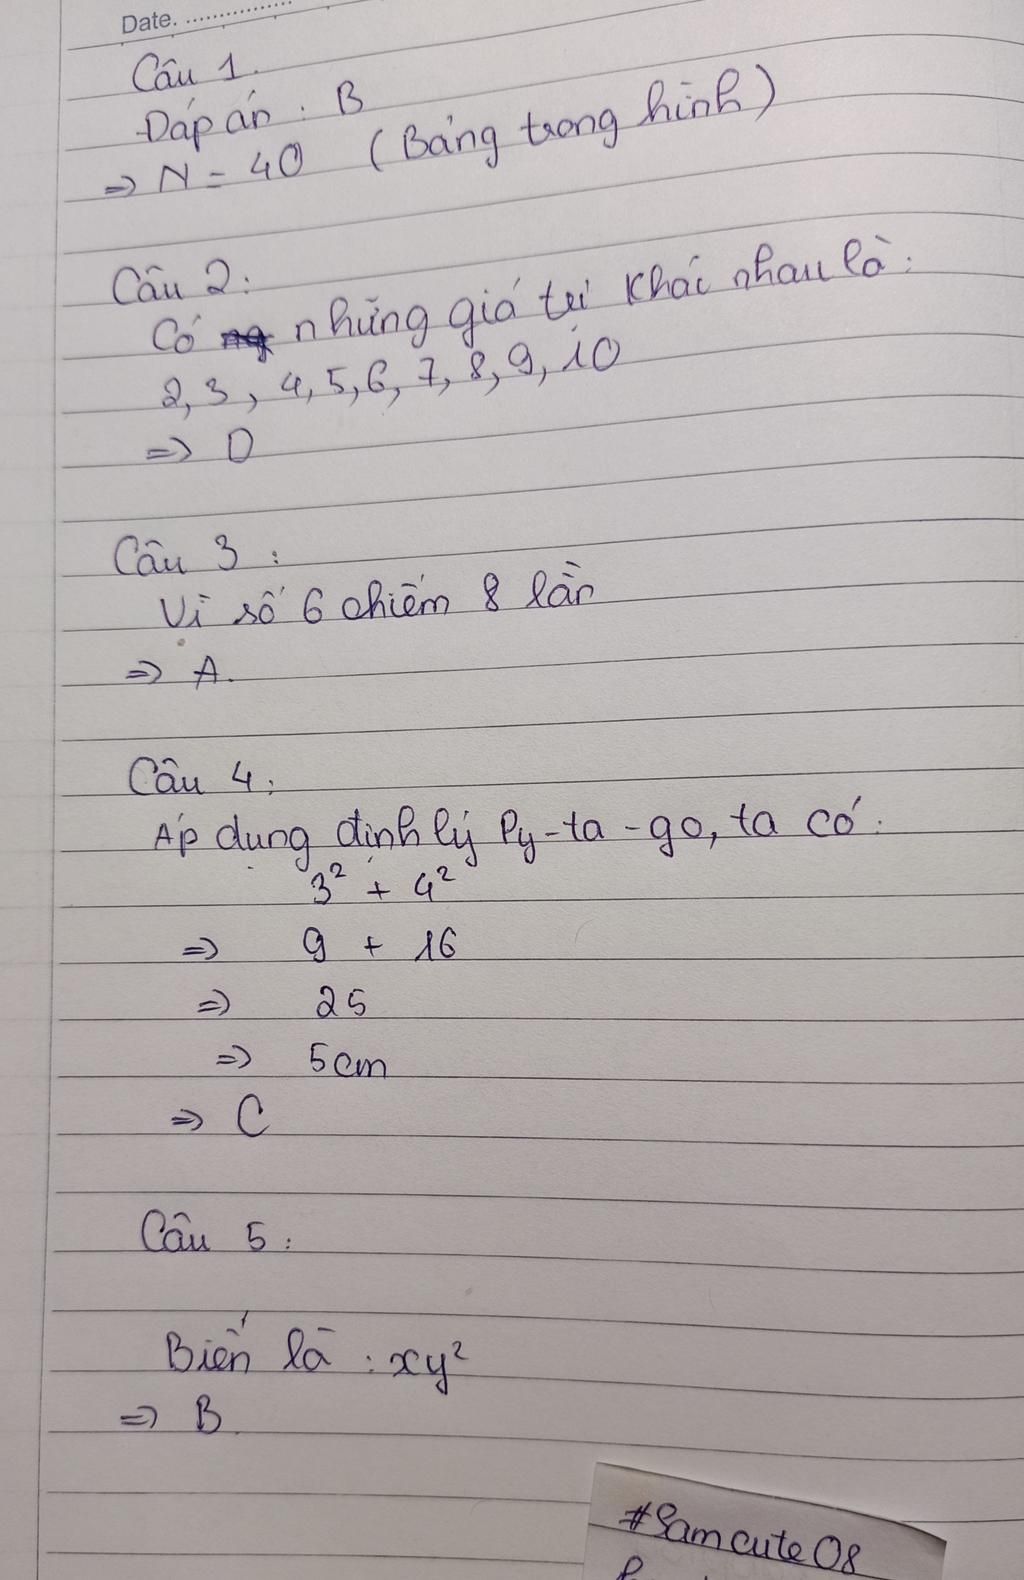 Date.
Câu 1.
Đáp án : B
=> N = 40 (Bảng trong hình)
Câu 2:
Có những giá trị khác nhau là:
2, 3, 4, 5, 6, 7, 8, 9, 10
=> D
Câu 3 :
Vì số 6 chiếm 8 lần
=> A.
Câu 4:
Áp dụng định lý Py-ta-go, ta có:
3² + 4²
=> 9 + 16
=> 25
=> 5cm
=> C
Câu 5:
Biến là : xy²
=> B.
#Samcute08